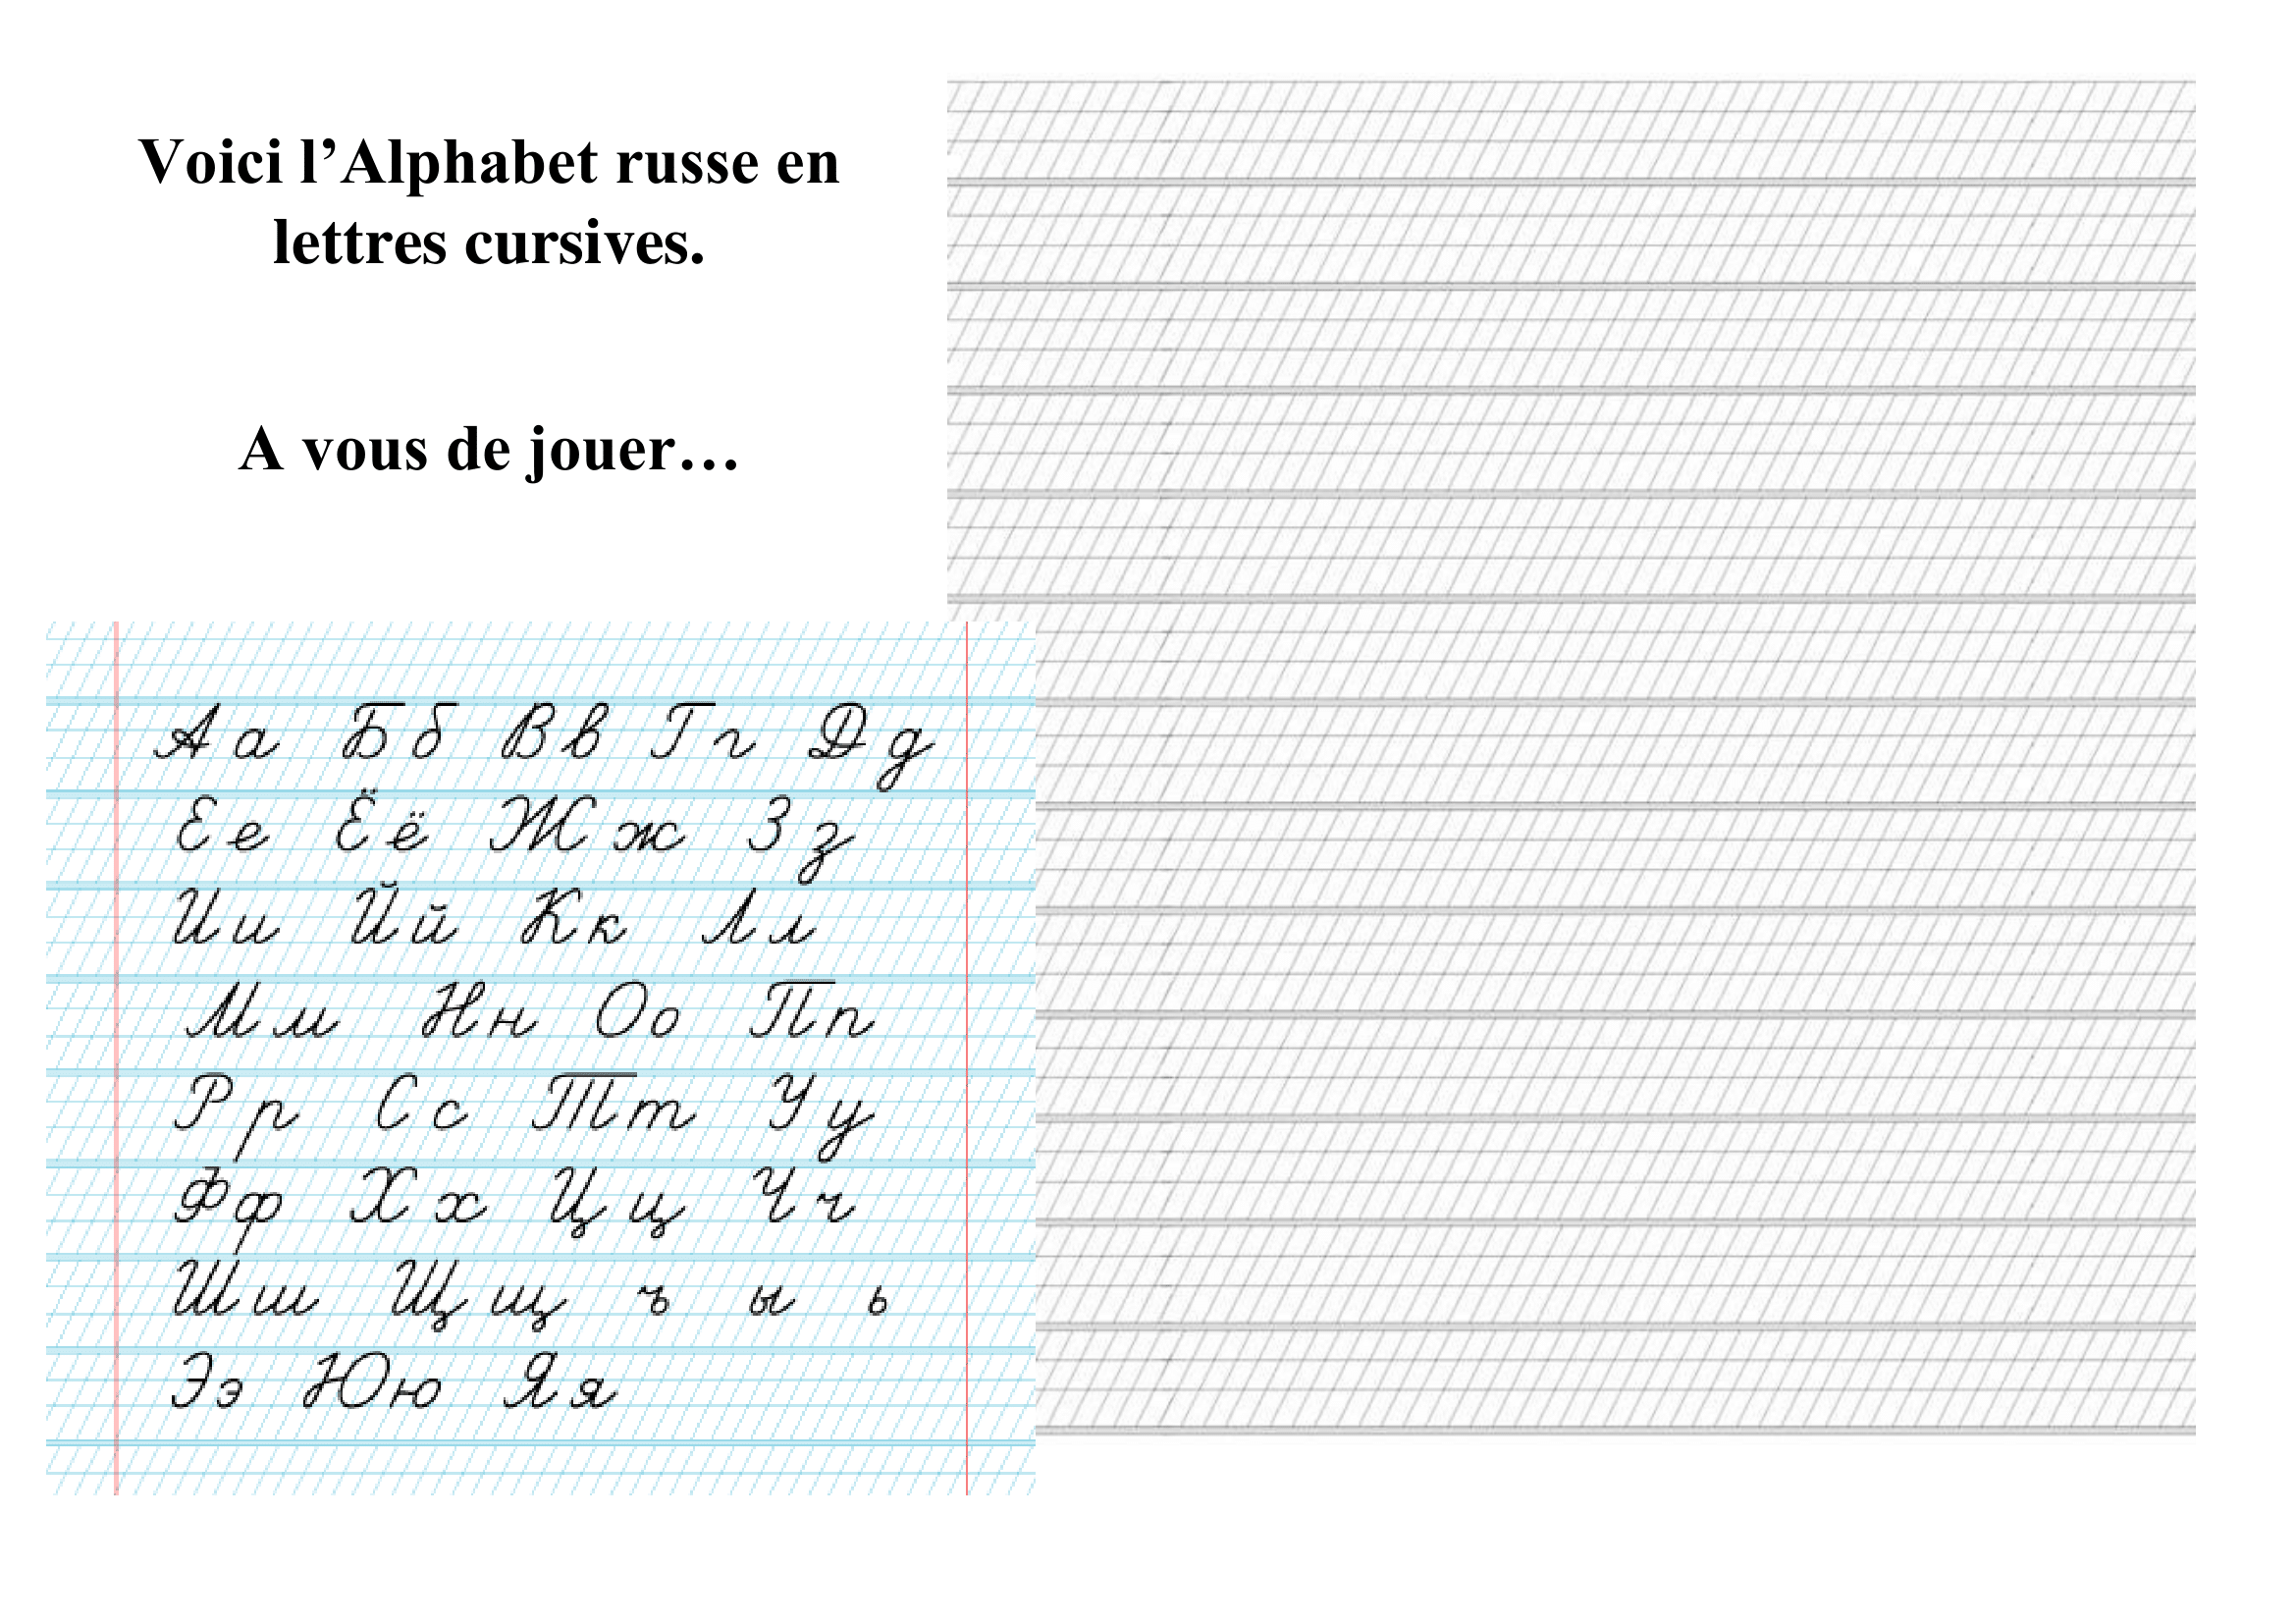 Voici l’Alphabet russe en
lettres cursives.
A vous de jouer…
Аа Бб Вв Гг Дд
Ее Ёё Жж Зз
Ии Йй Кк Лл
Мм Нн Оо Пп
Рр Сс Тт Уу
Фф Хх Цц Чч
Шш Щщ ъ ы ь
Ээ Юю Яя